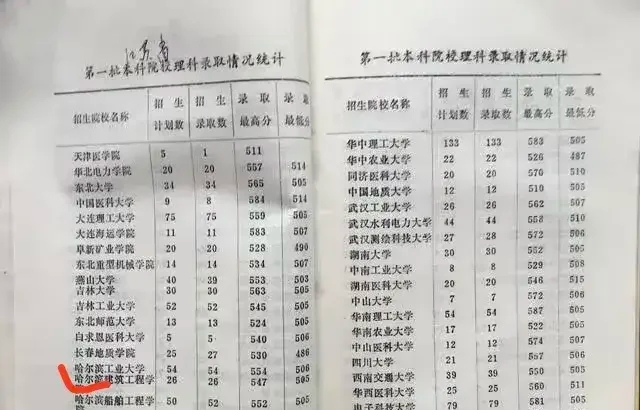 江苏省
第一批本科院校理科录取情况统计
招生院校名称 招生计划数 招生录取数 录取最高分 录取最低分
天津医学院 5 1 511
华北电力学院 20 20 557 514
东北大学 34 34 565 505
中国医科大学 9 8 584 514
大连理工大学 75 75 559 505
大连海运学院 11 11 583 507
阜新矿业学院 20 20 528 490
东北重型机械学院 14 14 534 507
燕山大学 40 39 553 503
吉林大学 30 30 563 505
吉林工业大学 52 52 545 505
东北师范大学 13 13 524 505
白求恩医科大学 5 5 540 506
长春地质学院 25 27 530 486
哈尔滨工业大学 54 54 554 506
哈尔滨建筑工程学 26 26 547 505
哈尔滨船舶工程学院 50 52 552 505
第一批本科院校理科录取情况统计
招生院校名称 招生计划数 招生录取数 录取最高分 录取最低分
华中理工大学 133 133 583 505
华中农业大学 22 22 526 487
同济医科大学 20 20 570 510
中国地质大学 12 12 510 505
武汉工业大学 26 26 562 507
武汉水利电力大学 44 44 558 510
武汉测绘科技大学 27 28 572 506
湖南大学 30 30 552 505
中南工业大学 8 8 529 508
湖南医科大学 20 20 546 515
中山大学 7 7 572 506
华南理工大学 12 12 587 508
华南农业大学 17 17 522 505
中山医科大学 12 12 574 507
四川大学 21 21 557 506
西南交通大学 39 39 550 505
华西医科大学 25 25 560 511
电子科技大学 79 79